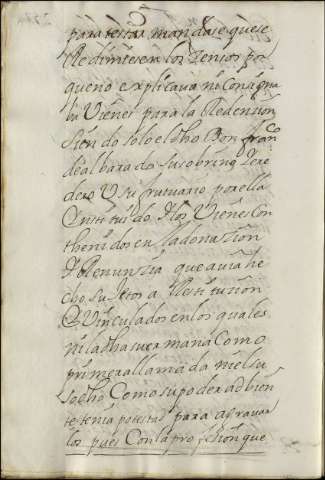 para testar mandase que se
Redimiesen los zensos por
que no explicava ni Consigna
ba Vienes para la Redension
siendo solo el dho Don franco
de albarado su sobrino Here
dero Y usufrutuario por ella
Ynstituido Y los Vienes Con
thenidos en la donazion
Y Renunssia que auia he
cho sujetos a Restituzion
Y Vinculados en los quales
ni la dha su ermana Como
primera llamada ni el su
so dho Como su poder ad bien
te tenia potestad para agravar
los pues Con la profesion que